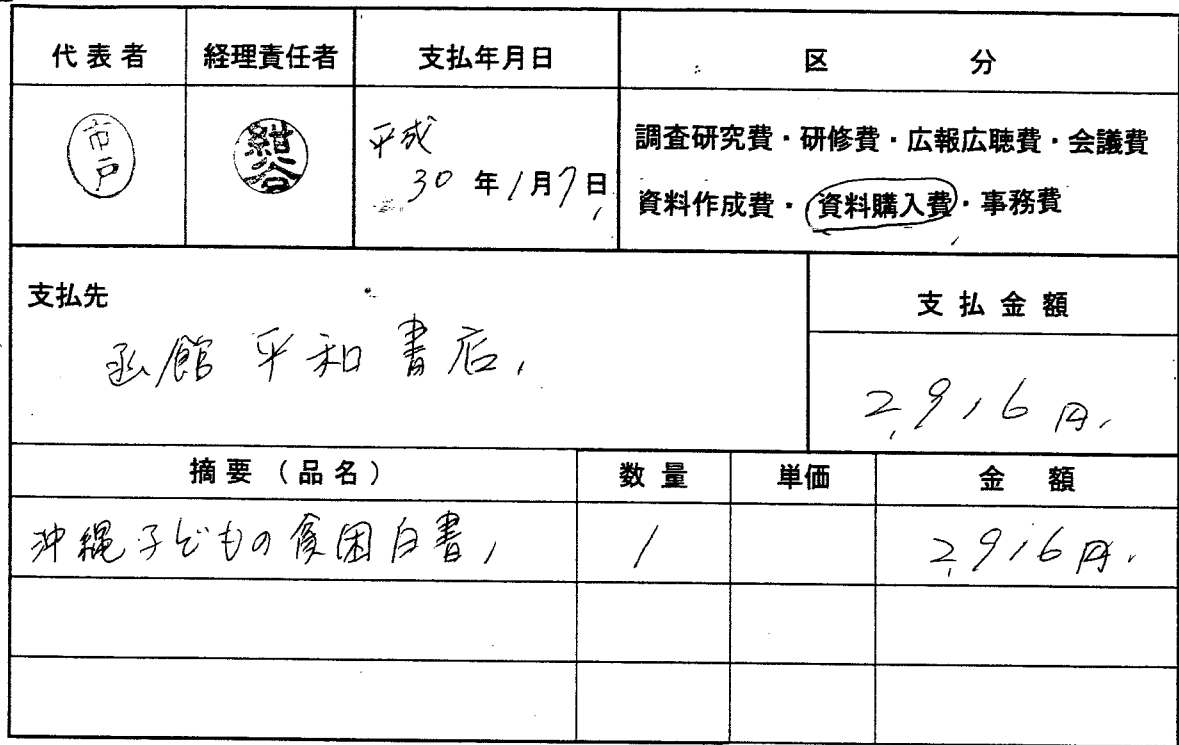 代表者 経理責任者 支払年月日 区 分
市戸 紺谷 平成
30年1月7日
調査研究費・研修費・広報広聴費・会議費
資料作成費・資料購入費・事務費
支払先 支払金額
函館 平和書店
2,916円
摘要(品名) 数量 単価 金 額
沖縄子どもの貧困白書 1 2,916円